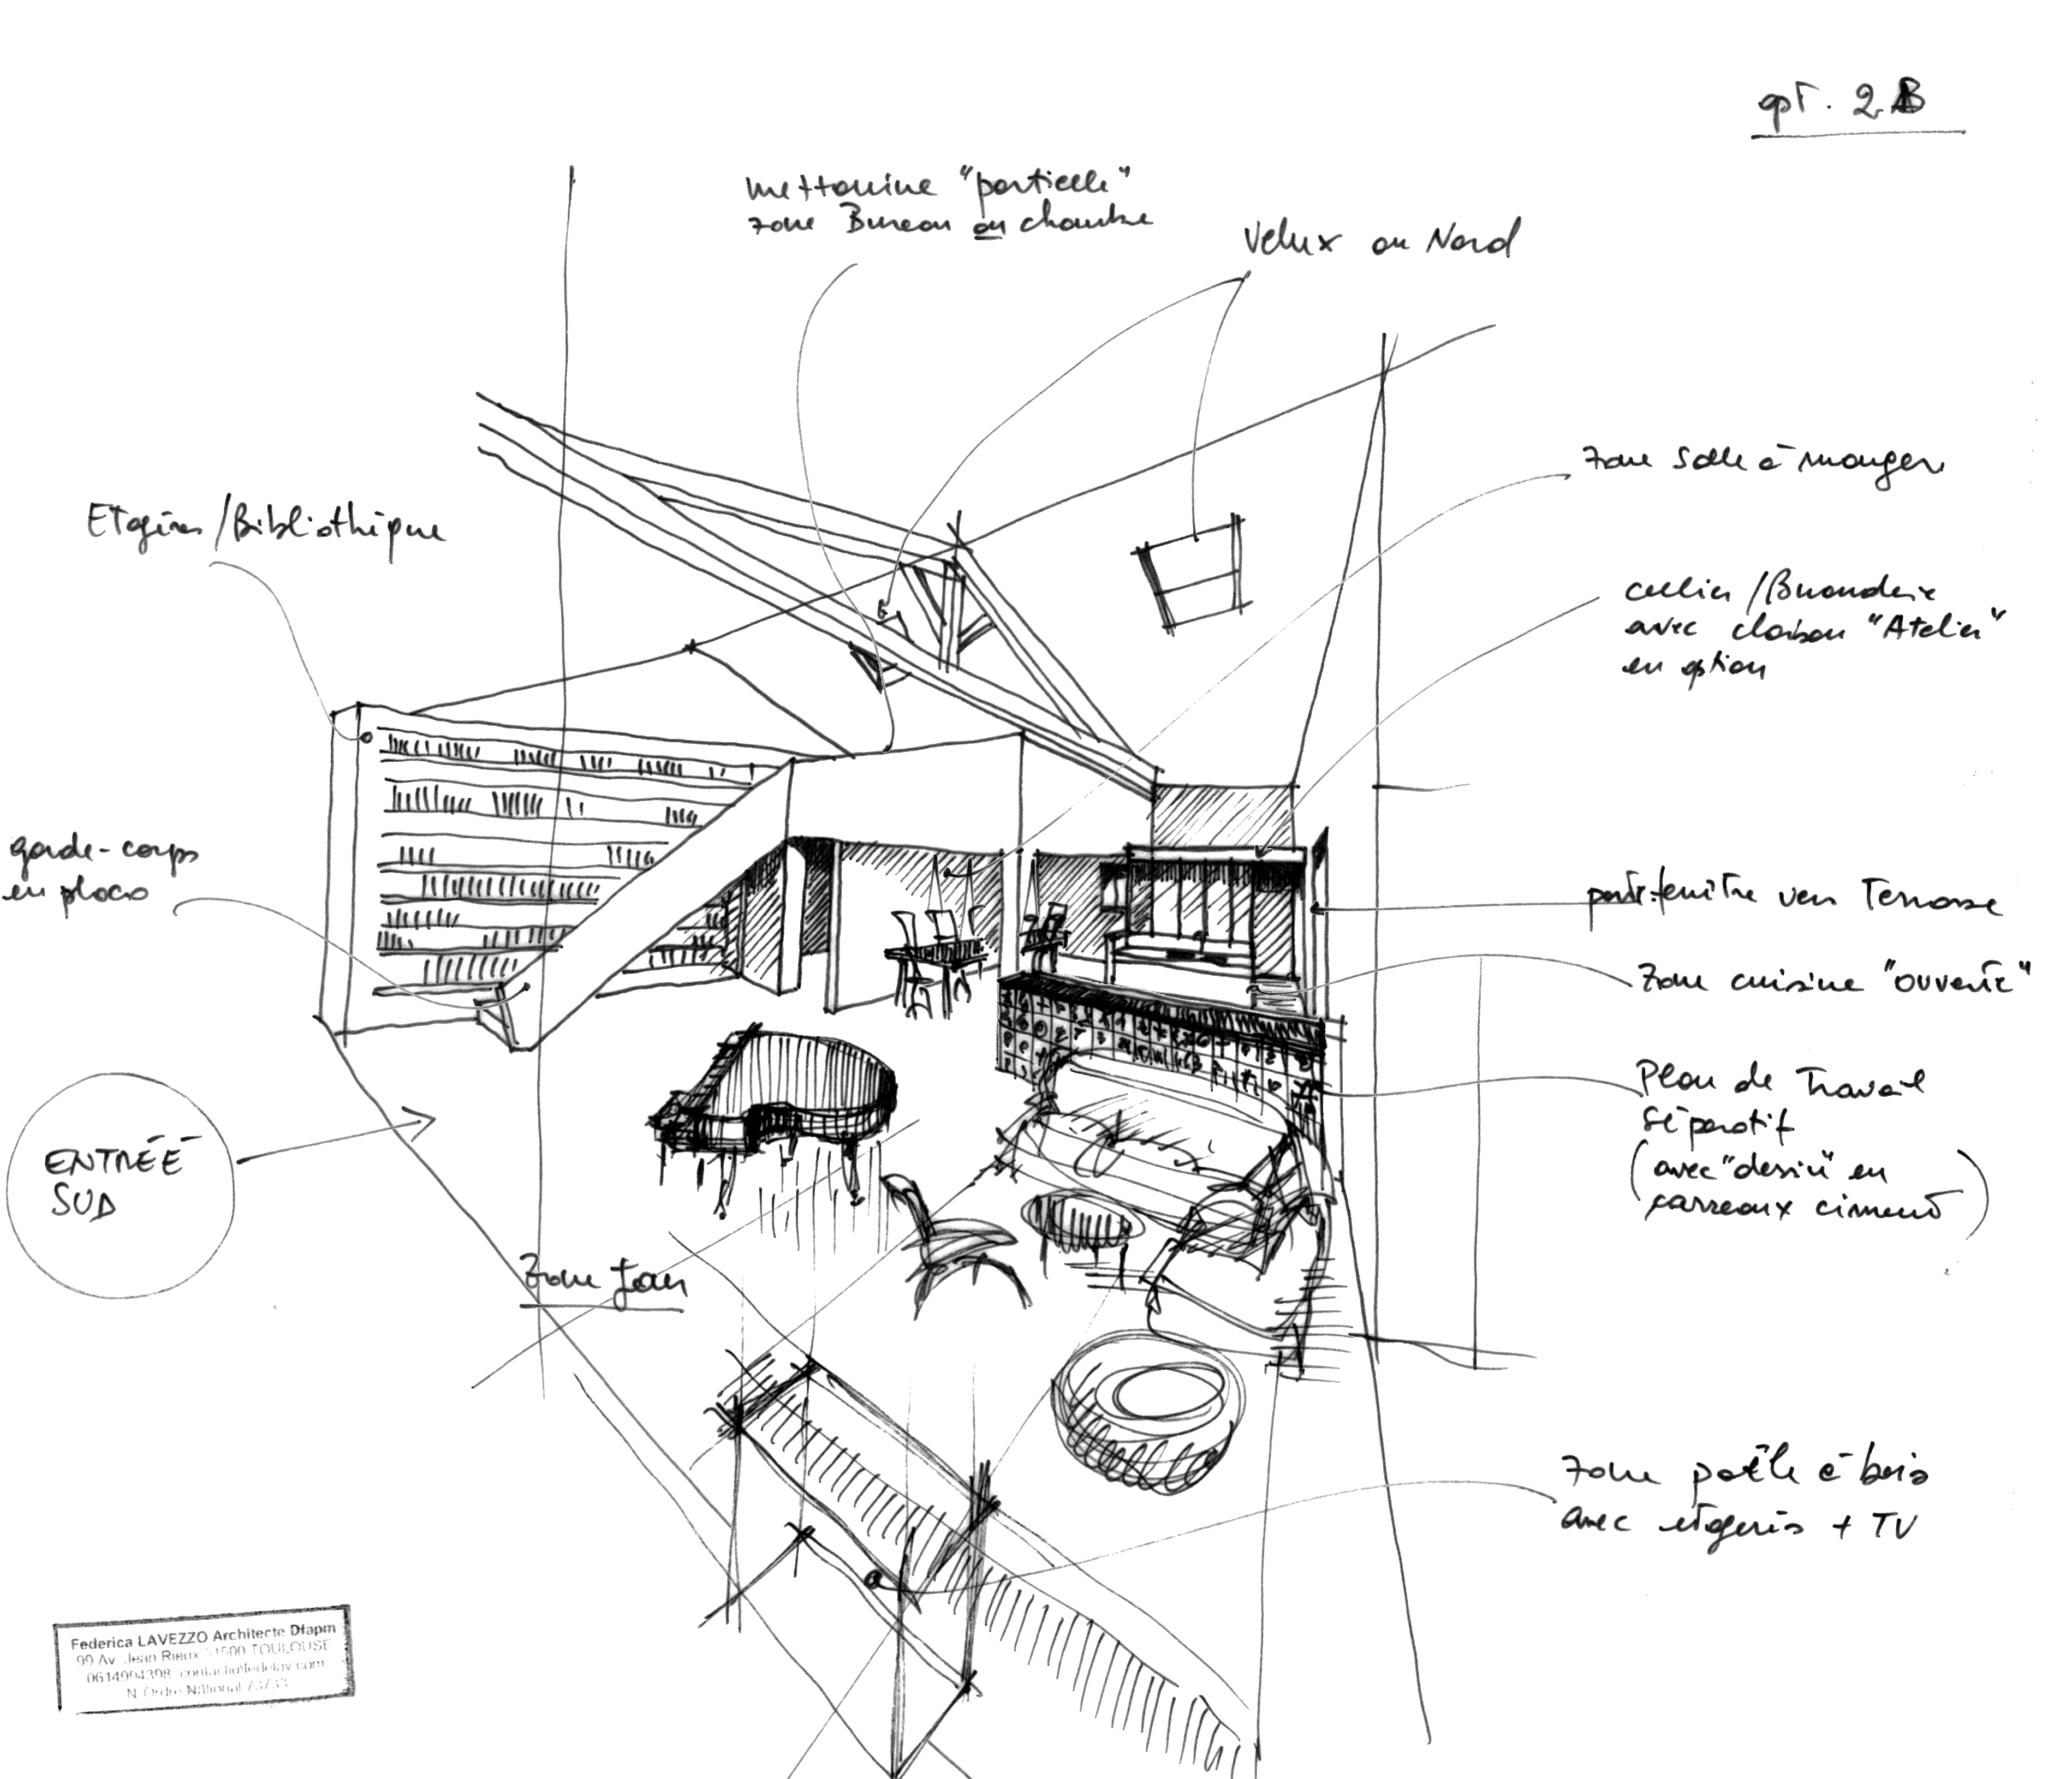 opt. 2B
mezzanine "partielle"
zone Bureau ou chambre
Velux au Nord
zone salle à manger
Etagères/Bibliothèque
cellier/Buanderie
avec cloison "Atelier"
en option
garde-corps
en placo
porte-fenêtre vers Terrasse
zone cuisine "ouverte"
Plan de Travail
séparatif
(avec "dessin" en
carreaux ciment)
ENTRÉE
SUD
zone
zone poêle à bois
avec etageres + TV
Federica LAVEZZO Architecte Dfapm
99 Av. Jean Rieux 31500 TOULOUSE
0614994398
N Ordre National